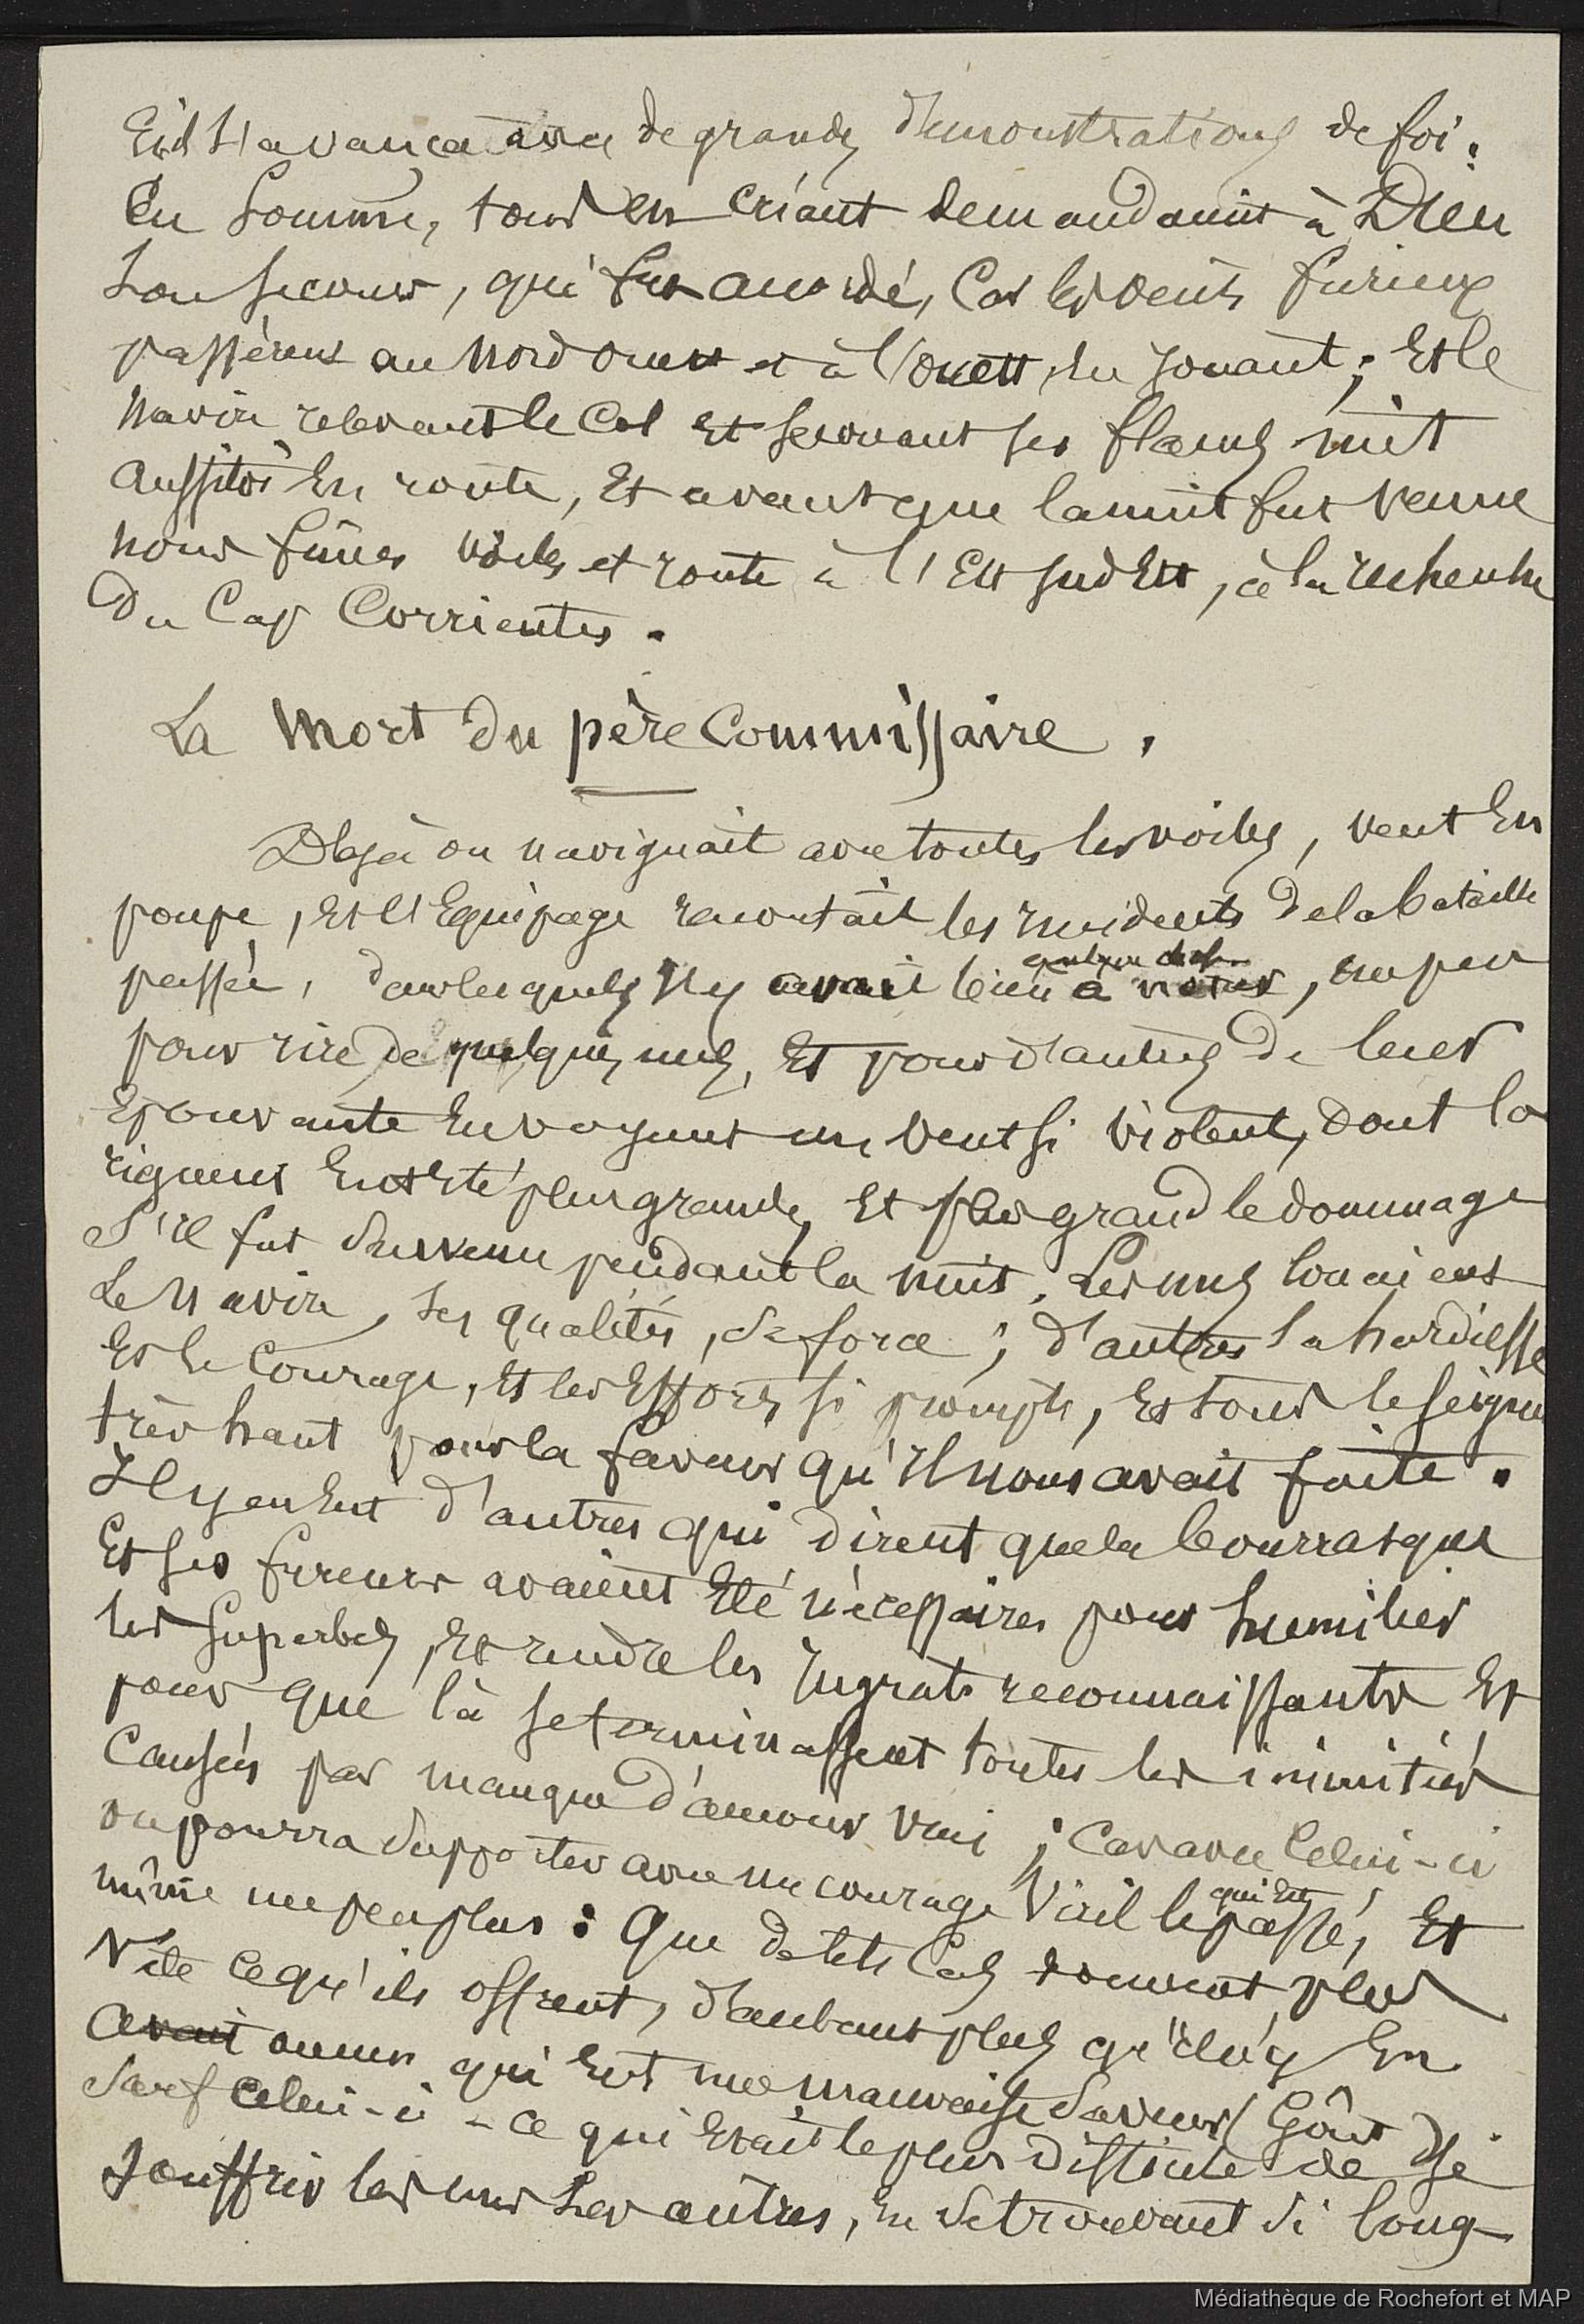 Et d s'avança avec de grandes démonstrations de foi.
En somme, tous en criant demandaient à Dieu
son secours, qui fut accordé, car les vents furieux
passèrent au Nord ouest et à l'ouest, en jouant ; Et le
Navire relevant le Col Et secouant ses flancs mit
aussitôt En route, Et avant que la nuit fut venue
nous fûmes voiles et route à l'Est sud Est, à la recherche
Du Cap Corrientes.
La Mort du père Commissaire.
Déjà on naviguait avec toutes les voiles, vent En
poupe, Et l'Equipage racontait les incidents de la bataille
passée, dans lesquels Il y avait bien à , un peu
pour rire de quelques uns, Et pour d'autres de leur
Epouvante En voyant un vent si violent, dont la
rigueur Eut Eté plus grande, Et plus grand le dommage
S'il fut survenu pendant la nuit. Les uns louaient
Le Navire, ses qualités, sa force ; d'autres la hardiesse
Et le Courage, Et les Efforts si prompts, Et tous le seigneur
très haut pour la faveur qu'Il nous avait faite.
Il y en Eut d'autres qui dirent que la bourrasque
Et ses fureurs avaient Eté nécessaires pour humilier
les superbes, Et rendre les Ingrats reconnaissants Et
pour que là se terminassent toutes les inimitiés
Causées par manque d'amour vrai ; Car avec Celui-ci
on pourra supporter avec un courage Viril le qui Est passé, Et
même un peu plus : Que de tels Cas trouvent plus
Vite ce qu'ils offrent, d'autant plus qu'il y En
avait aucun qui Eut une mauvaise saveur / Goût
sauf Celui-ci - Ce qui Etait le plus distinct de se
souffrir les uns les autres, En se trouvant si long-
Médiathèque de Rochefort et MAP